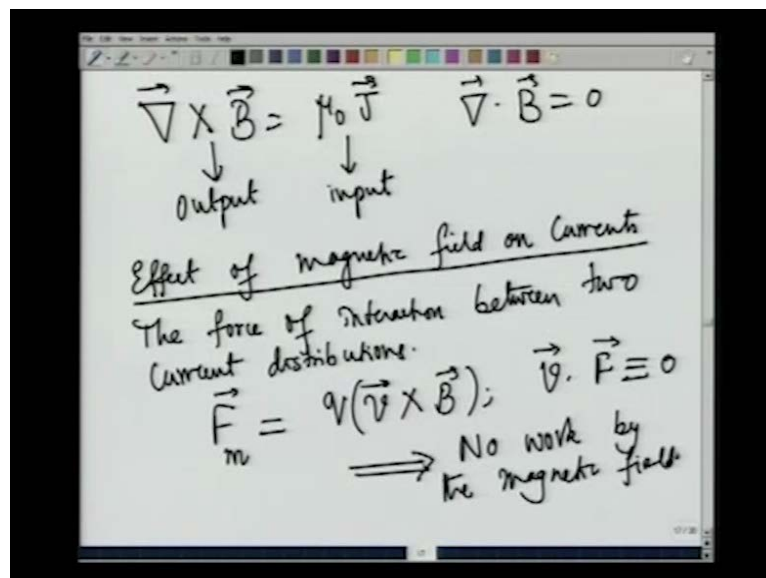 File Edit View Insert Actions Tools Help
∇⃗ × B⃗ = μ₀ J⃗ ∇⃗ · B⃗ = 0
output input
Effect of magnetic field on Currents
The force of interaction between two
Current distributions.
F⃗ₘ = q(v⃗ × B⃗); v⃗ · F⃗ ≡ 0
⟹ No work by
the magnetic field.
17/20